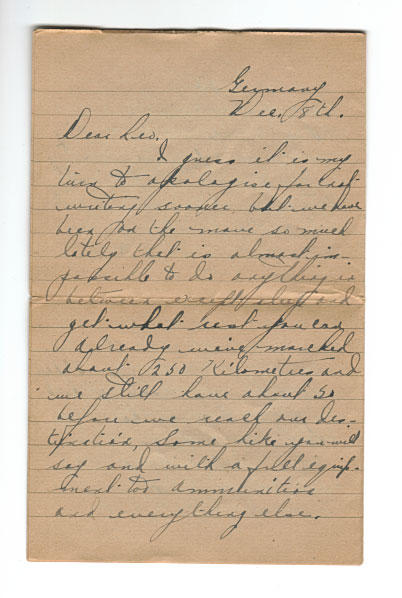 Germany
Dec. 8th.
Dear Leo.
I guess it is my
turn to apologise for not
writing sooner but we have
been on the move so much
lately that is almost im-
possible to do anything in
between except sleep and
get what rest you can
Already we've marched
about 250 Kilometies and
we still have about 50
before we reach our des-
tination, Some hike you will
say and with a full equip-
ment too ammunition
and everything else.